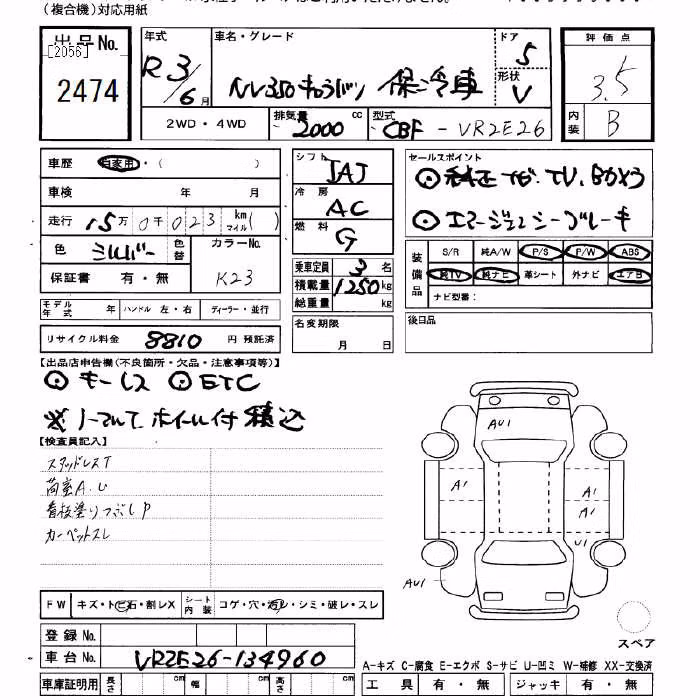 (複合機)対応用紙
出品No. [2056] 2474
年式 R3/6月
車名・グレード NV350キャラバン 保冷車
ドア 5
形状 V
評価点 3.5
内装 B
2WD・4WD
排気量 2000 cc
型式 CBF-VR2E26
車歴 自家用・( )
車検 年 月
走行 15万0千023 km マイル( )
色 シルバー 色替 カラーNo. K23
保証書 有・無
シフト IAT
冷房 AC
燃料 G
乗車定員 3名
積載量 1250kg
総重量 kg
セールスポイント
⊙純正ナビ.TV.BカメラX3
⊙エマージェンシーブレーキ
装備品 S/R 純A/W P/S P/W ABS
純TV 純ナビ 革シート 外ナビ エアB
ナビ型番:
モデル年式 年 ハンドル 左・右 ディーラー・並行
名変期限 月 日
後日品
リサイクル料金 8810 円 預託済
【出品店申告欄(不良箇所・欠品・注意事項等)】
⊙キーレス ⊙ETC
※ノーマルT ホイール付 積込
【検査員記入】
スタッドレスT
荷室A.U
看板塗りつぶしP
カーペットスレ
AU1
A1
A1
A1
U1
AU1
FW キズ・トビ石・割レX シート内装 コゲ・穴・汚レ・シミ・破レ・スレ
登録No.
車台No. VR2E26-134960
スペア
A-キズ C-腐食 E-エクボ S-サビ U-凹ミ W-補修 XX-交換済
車庫証明用 長さ cm 幅 cm 高さ cm
工具 有・無 ジャッキ 有・無